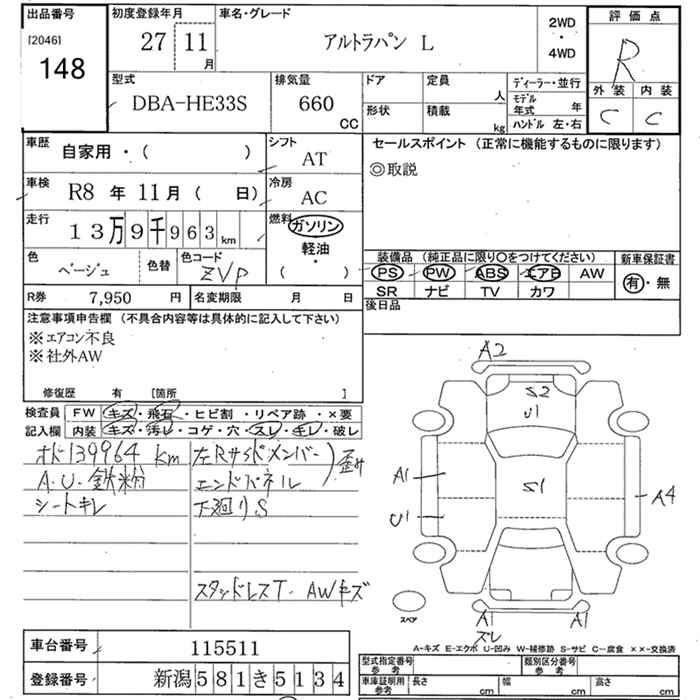 出品番号
[2046]
148
初度登録年月
27 11
月
車名・グレード
アルトラパン L
2WD
・
4WD
評価点
R
外装 内装
C C
型式
DBA-HE33S
排気量
660
CC
ドア
定員
人
形状
積載
kg
ディーラー・並行
モデル
年式 年
ハンドル 左・右
車歴
自家用・( )
シフト
AT
車検
R8 年 11月 ( 日)
冷房
AC
走行
13万9千963km
燃料
ガソリン
軽油・
( )
色
ベージュ
色替
色コード
ZVP
R券
7,950 円
名変期限 月 日
セールスポイント (正常に機能するものに限ります)
◎取説
装備品 (純正品に限り○をつけてください)
PS PW ABS エアB AW
SR ナビ TV カワ
新車保証書
有・無
後日品
注意事項申告欄 (不具合内容等は具体的に記入して下さい)
※エアコン不良
※社外AW
修復歴 有 [箇所 ]
検査員 FW キズ・飛石・ヒビ割・リペア跡・×要
記入欄 内装 キズ・汚レ・コゲ・穴・スレ・キレ・破レ
オド139964 km
A.U.鉄粉
シートキレ
左Rサイドメンバー
エンドパネル
)歪み
下廻りS
スタッドレスT. AWキズ
A2
S2
U1
A1
S1
A4
U1
A1
スレ
A1
スペア
A-キズ E-エクボ U-凹み W-補修跡 S-サビ C-腐食 ××-交換済
車台番号
115511
登録番号
新潟 581 き 5134
型式指定番号
参考
類別区分番号
参考
車庫証明用
参考
長さ cm
幅 cm
高さ cm